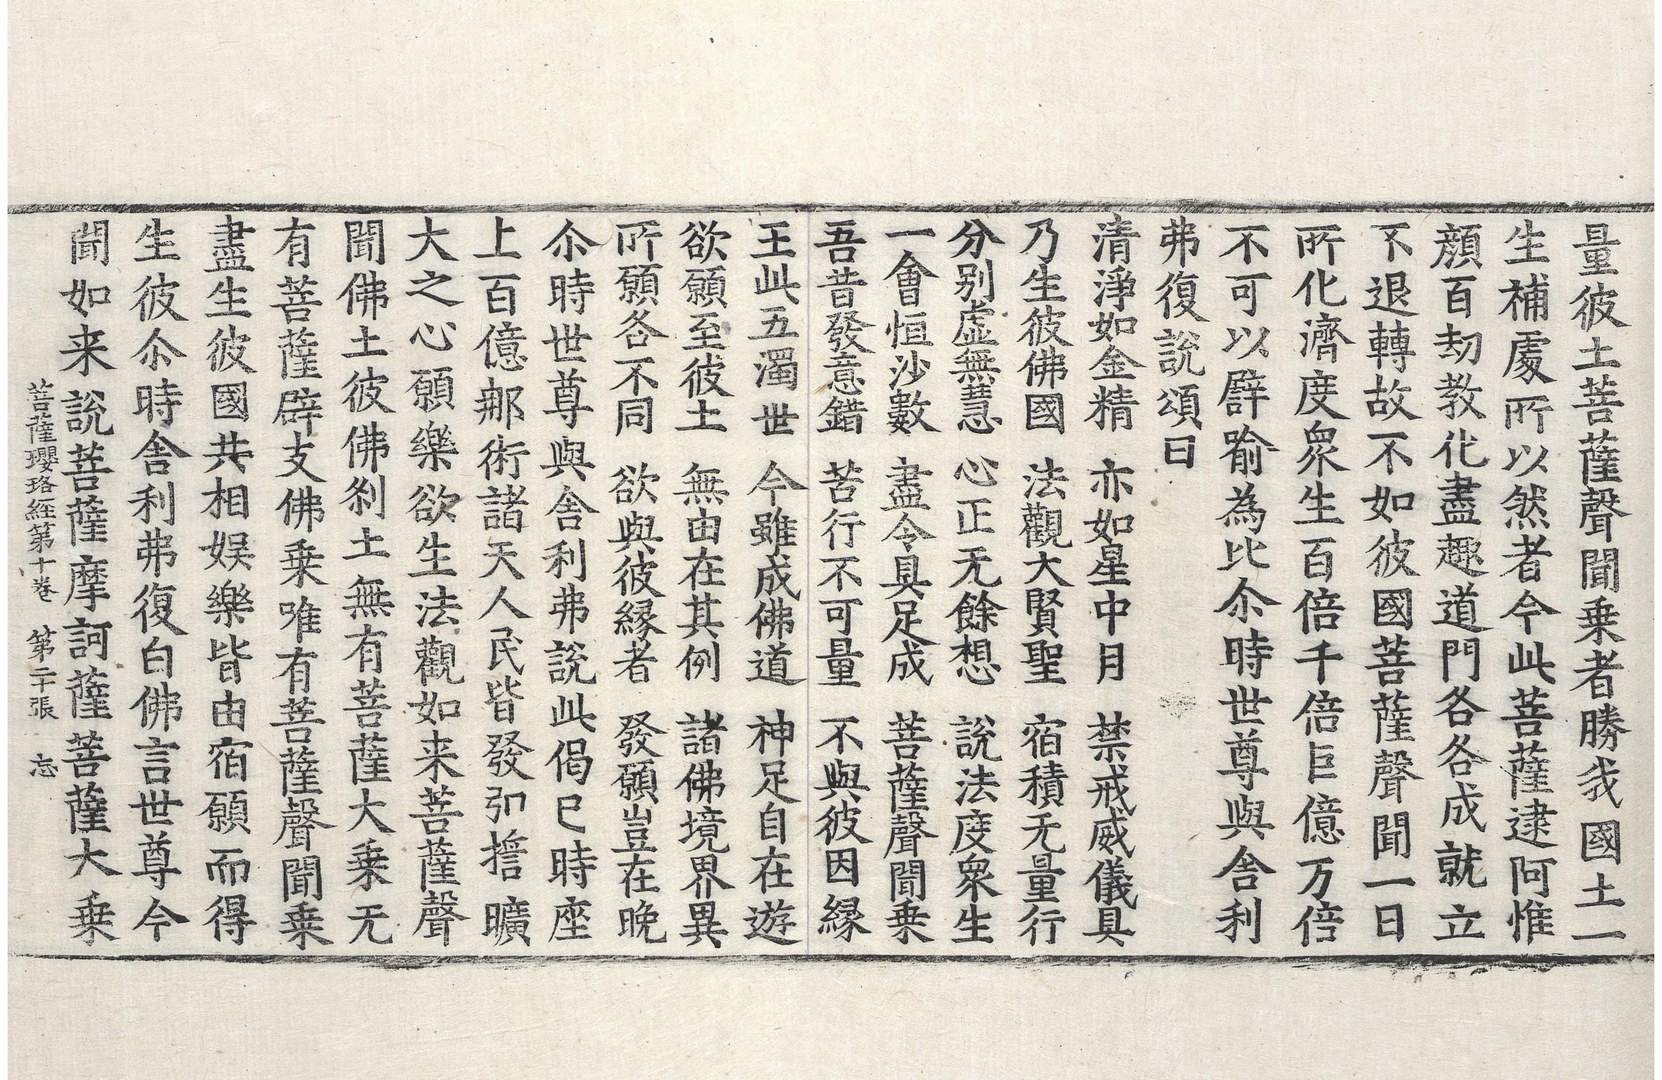 量彼土菩薩聲聞乗者勝我國土一
生補處所以然者今此菩薩逮阿惟
顔百劫教化盡趣道門各各成就立
不退轉故不如彼國菩薩聲聞一日
所化濟度衆生百倍千倍巨億万倍
不可以辟喻為比尒時世尊與舍利
弗復說頌曰
清淨如金精 亦如星中月 禁戒威儀具
乃生彼佛國 法觀大賢聖 宿積无量行
分别虛無慧 心正无餘想 說法度衆生
一會恒沙數 盡令具足成 菩薩聲聞乗
吾昔發意錯 苦行不可量 不與彼因縁
王此五濁世 今雖成佛道 神足自在遊
欲願至彼土 無由在其例 諸佛境界異
所願各不同 欲與彼縁者 發願豈在晚
尒時世尊與舍利弗說此偈已時座
上百億那術諸天人民皆發弘擔曠
大之心願樂欲生法觀如来菩薩聲
聞佛土彼佛刹土無有菩薩大乗无
有菩薩辟支佛乗唯有菩薩聲聞乗
盡生彼國共相娱樂皆由宿願而得
生彼尒時舍利弗復白佛言世尊今
聞如来說菩薩摩訶薩菩薩大乗
菩薩瓔珞經第十卷 第二十張 忘